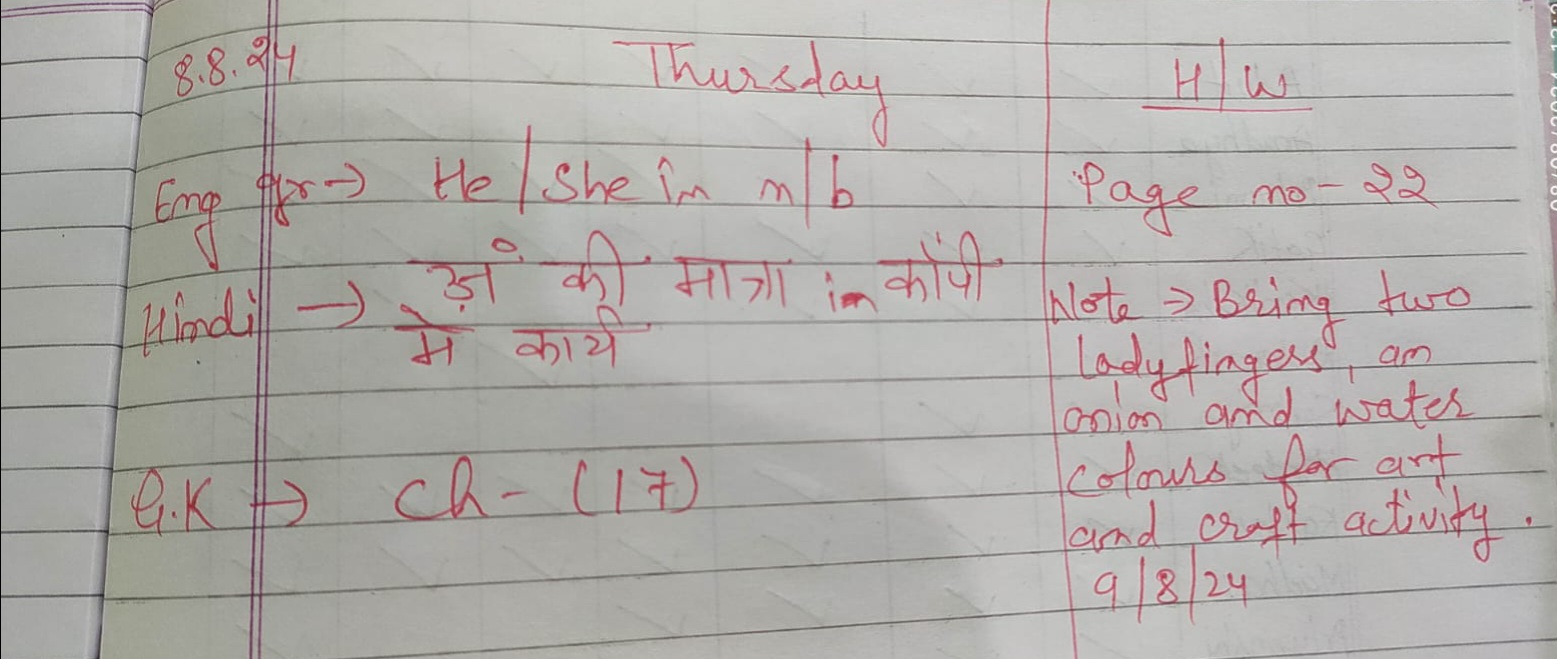 8.8.24 Thursday H/W
Eng gr → He/She in n/b Page no - 22
Hindi → अं की मात्रा in कॉपी
मे कार्य
Note ⇒ Bring two
ladyfingers, an
onion and water
G.K → Ch - (17)
colours for art
and craft activity.
9/8/24